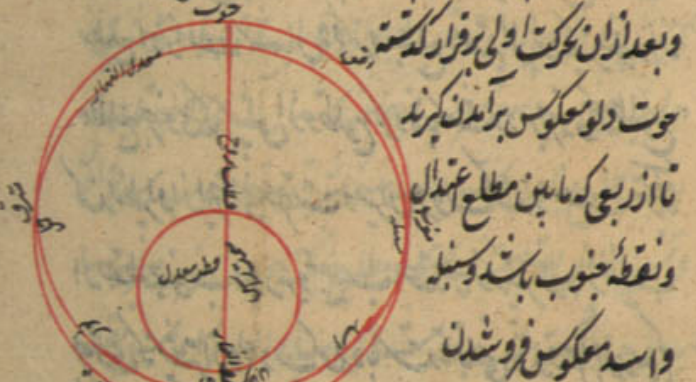 وبعد ازان بحرکت اولی برقرار گذشته
حوت دلو معکوس برآمدن گیرند
تا از ربعی که مابین مطلع اعتدال
ونقطهٔ جنوب باشد وسنبله
واسد معکوس فروشدن
جنوب
معدل النهار
مشرق
مغرب
سنبله
قطب بروج
قطر معدل
اسد